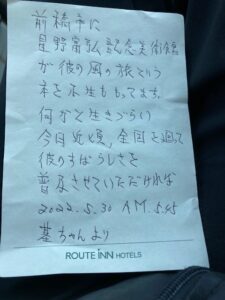 前橋市に
星野富弘記念美術館
が彼の風の旅という
本を小生ももってます。
何かと生きづらい
今日近頃、全国を廻って
彼のすばらしさを
普及させていただければ
2022.5.30 AM.5.45
基ちゃんより
ROUTE INN HOTELS